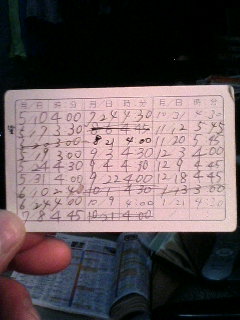 月 日 時 分 月 日 時 分 月 日 時 分
5 10 4 00 7 24 4 30 10 31 4 30
5 17 3 30 11 12 5 45
8 21 4 00 11 20 5 45
5 19 3 00 9 3 4 30 12 3 4 00
5 24 4 30 9 4 4 10 12 9 4 45
5 31 4 00 9 22 4 00 12 18 4 45
6 10 2 4 10 1 4 30 1 13 3 00
6 24 4 00 10 9 4 00 1 21 4 30
7 8 4 45 10 21 4 00